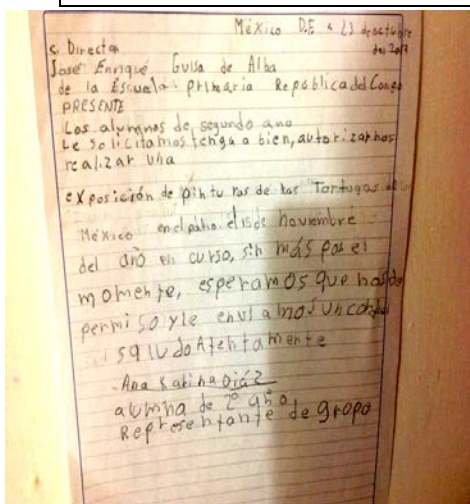 México D.F a 23 de octubre
del 2013
C. Director
José Enrique Guisa de Alba
de la Escuela: primaria República del Congo
PRESENTE
Los alumnos de segundo ano
Le solicitamos tenga a bien, autorizarnos
realizar una
exposición de pinturas de las Tortugas de
México en el patio el 15 de noviembre
del año en curso, sin más por el
momente, esperamos que nos de
permiso y le enviamos un
saludo Atentamente
Ana Karina Diáz
alumna de 2º año
Representante de gropo